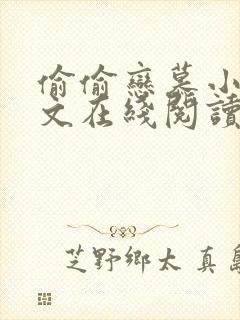 偷偷戀慕小
文在綫閱讀
芝野鄉太真島